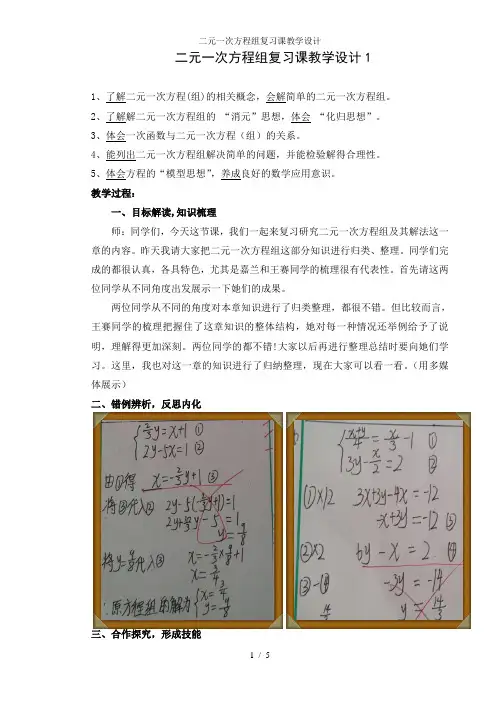 二元一次方程组复习课教学设计
二元一次方程组复习课教学设计1
1、了解二元一次方程(组)的相关概念,会解简单的二元一次方程组。
2、了解解二元一次方程组的 “消元”思想,体会 “化归思想”。
3、体会一次函数与二元一次方程(组)的关系。
4、能列出二元一次方程组解决简单的问题,并能检验解得合理性。
5、体会方程的“模型思想”,养成良好的数学应用意识。
教学过程:
一、目标解读,知识梳理
师:同学们,今天这节课,我们一起来复习研究二元一次方程组及其解法这一
章的内容。昨天我请大家把二元一次方程组这部分知识进行归类、整理。同学们完
成的都很认真,各具特色,尤其是嘉兰和王赛同学的梳理很有代表性。首先请这两
位同学从不同角度出发展示一下她们的成果。
两位同学从不同的角度对本章知识进行了归类整理,都很不错。但比较而言,
王赛同学的梳理把握住了这章知识的整体结构,她对每一种情况还举例给予了说
明,理解得更加深刻。两位同学的都不错!大家以后再进行整理总结时要向她们学
习。这里,我也对这一章的知识进行了归纳整理,现在大家可以看一看。(用多媒
体展示)
二、错例辨析,反思内化
2/3y=x+1 ①
2y-5x=1 ②
由①得 x=-2/3y+1 ③
将③代入② 2y-5(-2/3y+1)=1
y=9/8
将y=9/8代入③ x=-2/3×9/8+1
x=3/4
∴原方程组的解为 x=3/4
y=9/8
(x+y)/4=x/3-1 ①
3y-x/2=2 ②
①×12 3x+3y-4x=-12
-x+3y=-12 ③
②×2 6y-x=2 ④
③-④ -3y=-14
y=14/3
三、合作探究,形成技能
1 / 5